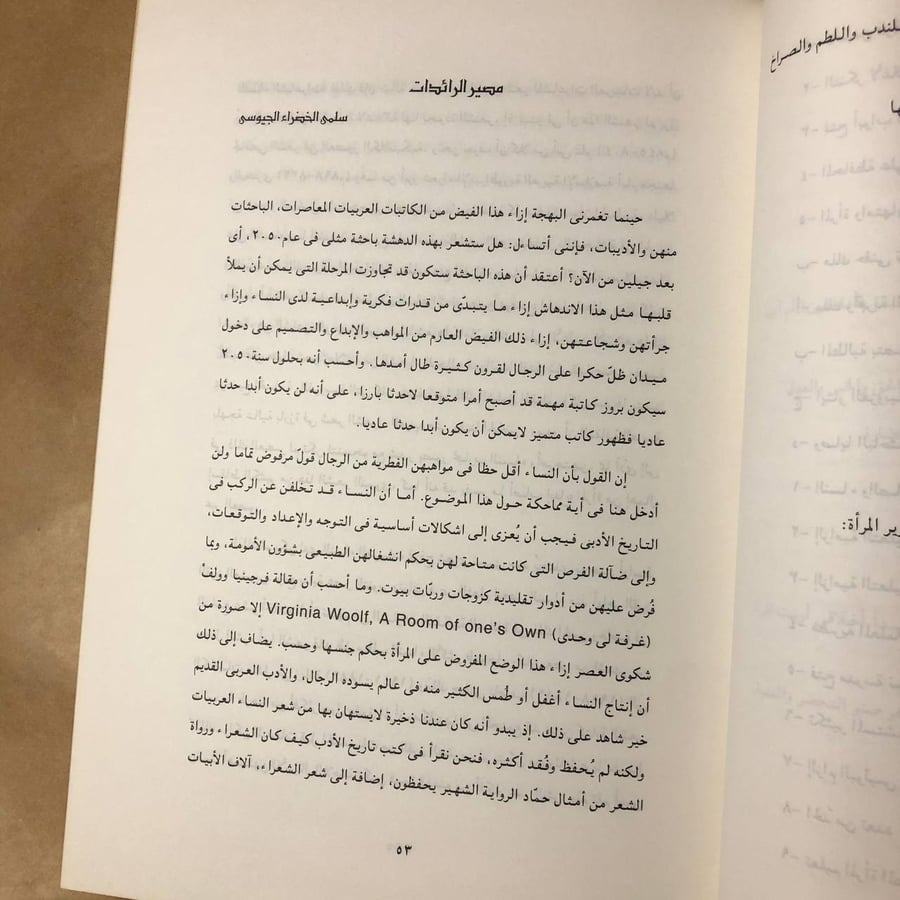 مصير الرائدات
سلمى الخضراء الجيوسى
حينما تغمرنى البهجة إزاء هذا الفيض من الكاتبات العربيات المعاصرات، الباحثات
منهن والأديبات، فإننى أتساءل: هل ستشعر بهذه الدهشة باحثة مثلى فى عام ٢٠٥٠، أى
بعد جيلين من الآن؟ أعتقد أن هذه الباحثة ستكون قد تجاوزت المرحلة التى يمكن أن يملأ
قلبها مثل هذا الاندهاش إزاء ما يتبدّى من قدرات فكرية وإبداعية لدى النساء وإزاء
جرأتهن وشجاعتهن، إزاء ذلك الفيض العارم من المواهب والإبداع والتصميم على دخول
ميدان ظلّ حكرا على الرجال لقرون كثيرة طال أمدها. وأحسب أنه بحلول سنة ٢٠٥٠
سيكون بروز كاتبة مهمة قد أصبح أمرا متوقعا لاحدثا بارزا، على أنه لن يكون أبدا حدثا
عاديا فظهور كاتب متميز لايمكن أن يكون أبدا حدثا عاديا.
إن القول بأن النساء أقل حظا فى مواهبهن الفطرية من الرجال قولٌ مرفوض تماما ولن
أدخل هنا فى أية مماحكة حول هذا الموضوع. أما أن النساء قد تخلفن عن الركب فى
التاريخ الأدبى فيجب أن يُعزى إلى اشكالات أساسية فى التوجه والإعداد والتوقعات،
وإلى ضآلة الفرص التى كانت متاحة لهن بحكم انشغالهن الطبيعى بشؤون الأمومة، وبما
فُرض عليهن من أدوار تقليدية كزوجات وربّات بيوت. وما أحسب أن مقالة فرجينيا وولفْ
(غرفة لى وحدى) Virginia Woolf, A Room of one's Own إلا صورة من
شكوى العصر إزاء هذا الوضع المفروض على المرأة بحكم جنسها وحسب. يضاف إلى ذلك
أن إنتاج النساء أغفل أو طُمس الكثير منه فى عالم يسوده الرجال، والأدب العربى القديم
خير شاهد على ذلك. إذ يبدو أنه كان عندنا ذخيرة لايستهان بها من شعر النساء العربيات
ولكنه لم يُحفظ وفُقد أكثره، فنحن نقرأ فى كتب تاريخ الأدب كيف كان الشعراء ورواة
الشعر من أمثال حمّاد الرواية الشهير يحفظون، إضافة إلى شعر الشعراء، آلاف الأبيات
٥٣
والـلطم والصراخ
المرأة: